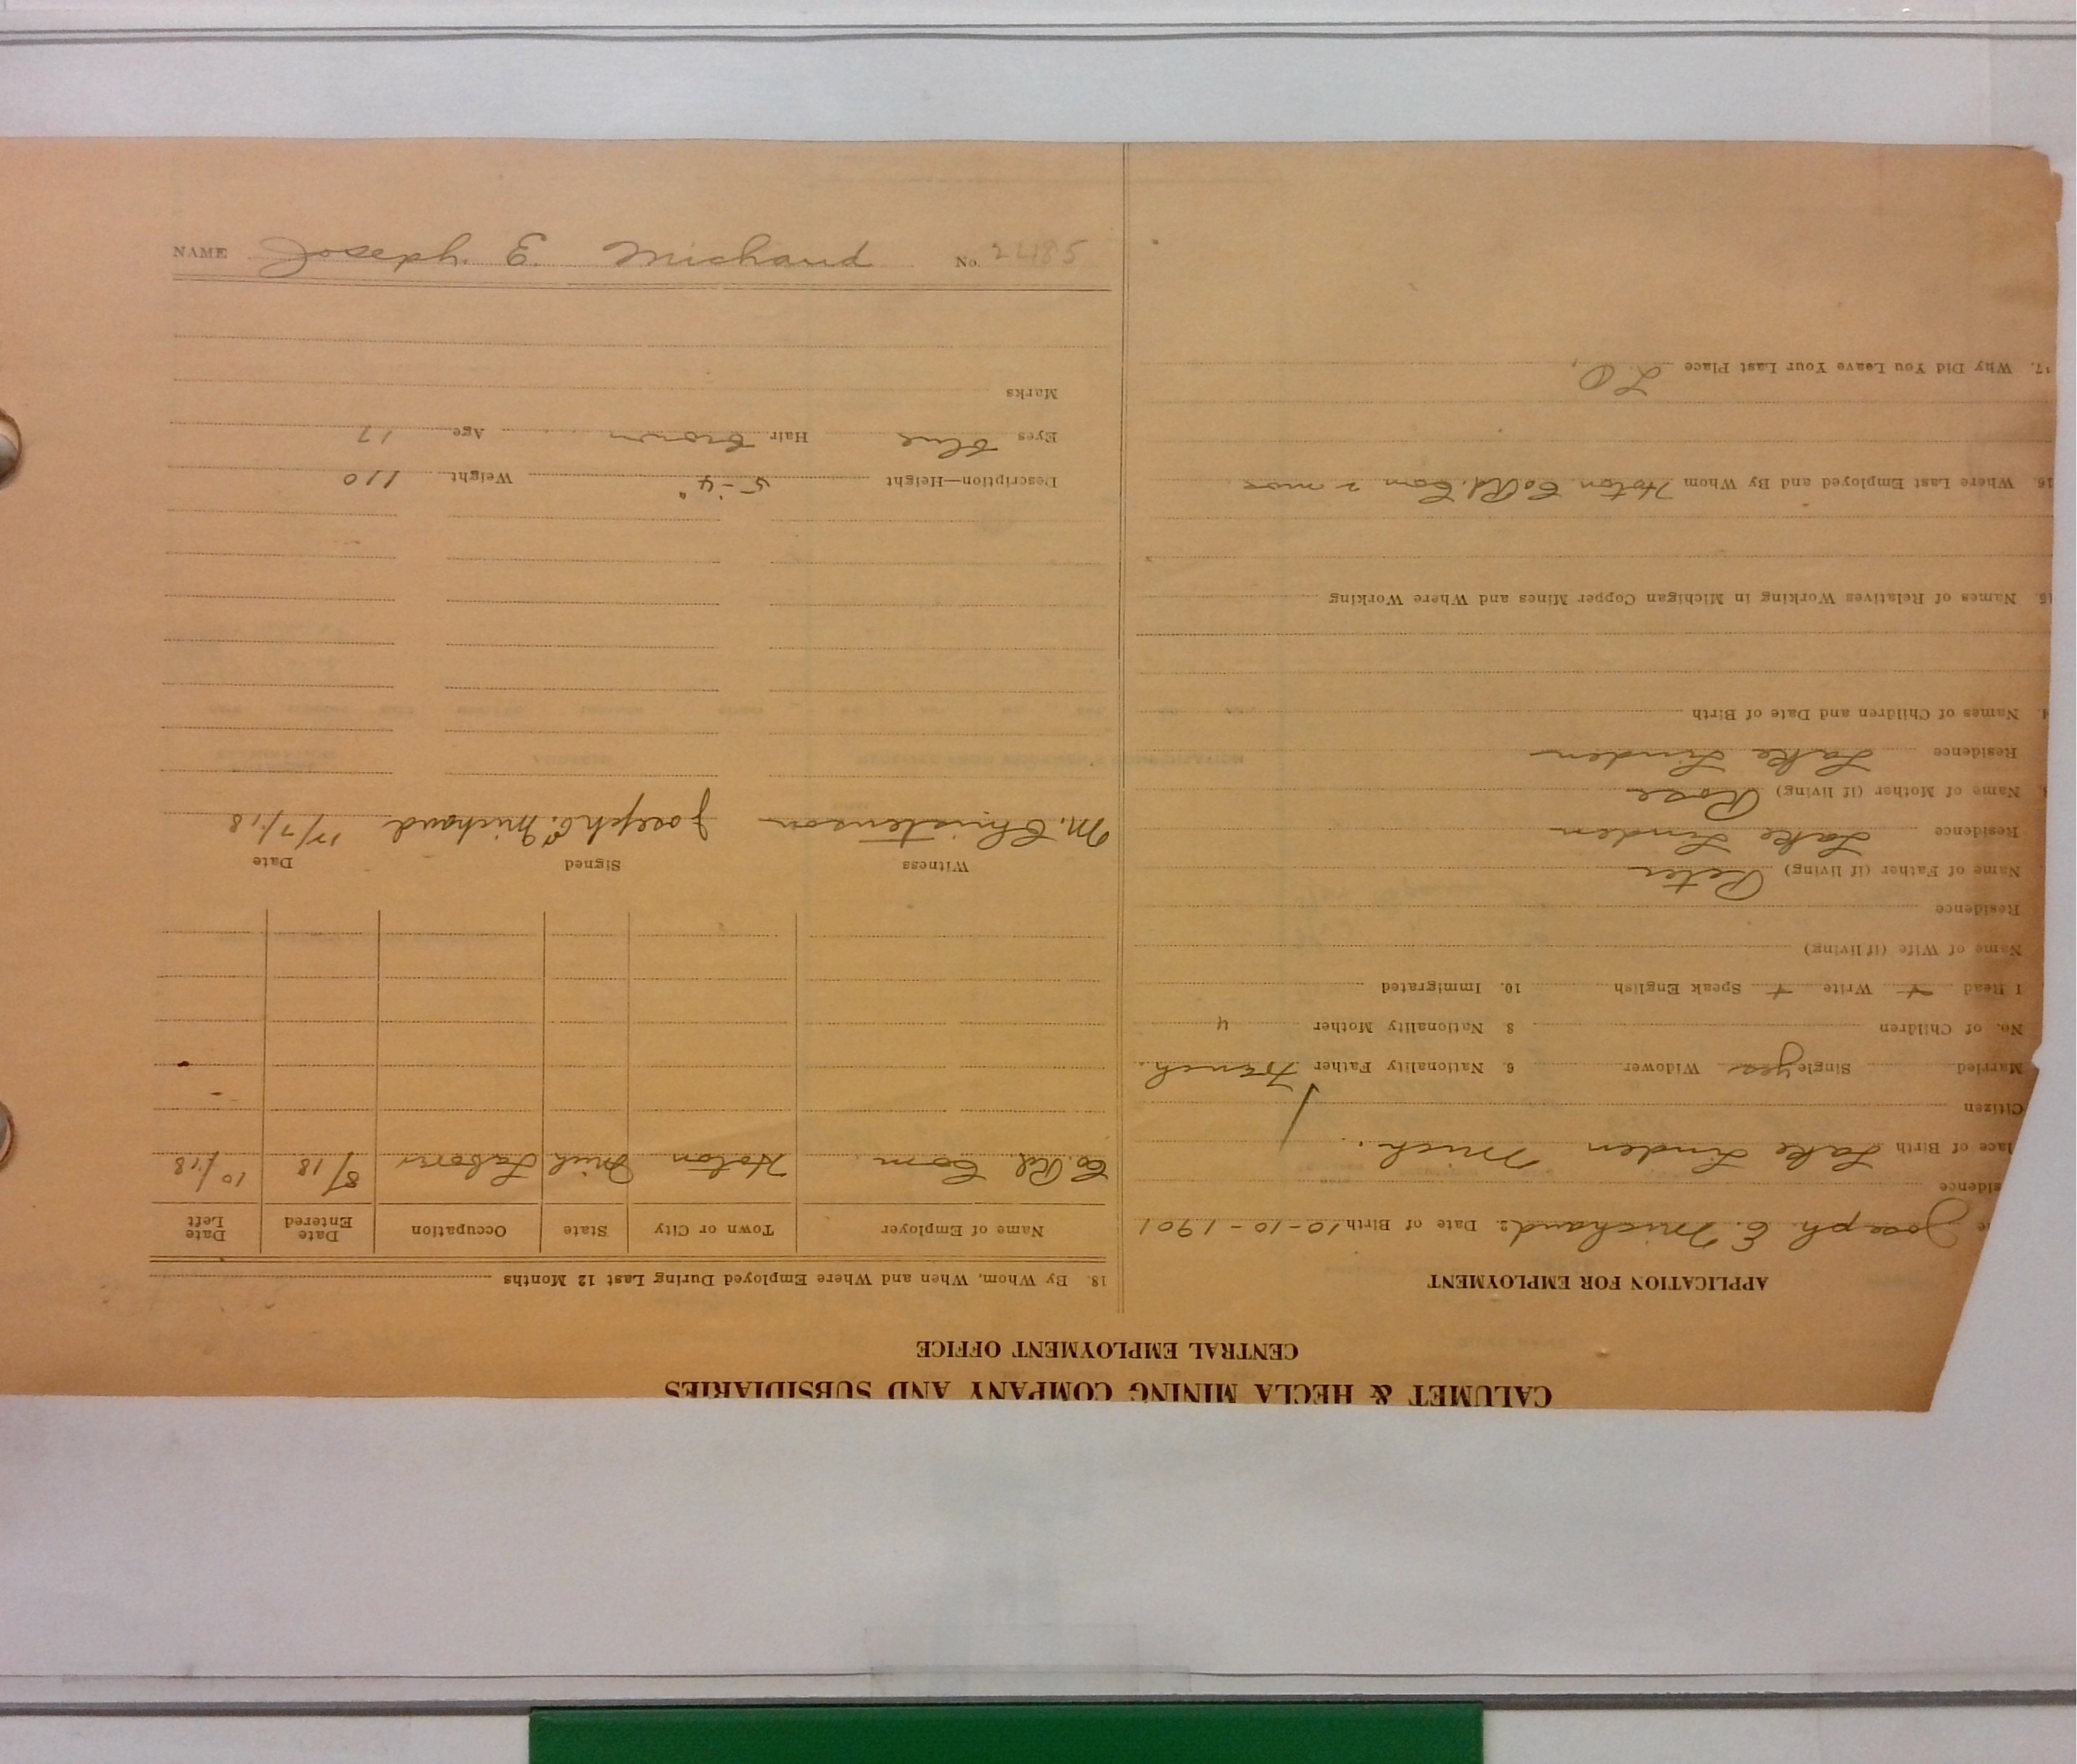 CALUMET & HECLA MINING COMPANY AND SUBSIDIARIES
CENTRAL EMPLOYMENT OFFICE
APPLICATION FOR EMPLOYMENT
e Joseph E. Michaud 2. Date of Birth 10-10-1901
sidence
lace of Birth Lake Linden Mich.
Citizen
Married Single yes Widower 6. Nationality Father French
No. of Children 8 Nationality Mother "
I Read + Write + Speak English 10. Immigrated
Name of Wife (if living)
Residence
Name of Father (if living) Peter
Residence Lake Linden
Name of Mother (if living) Rose
Residence Lake Linden
4. Names of Children and Date of Birth
15. Names of Relatives Working in Michigan Copper Mines and Where Working
16. Where Last Employed and By Whom Hoton Co Rd. Com 2 mos
17. Why Did You Leave Your Last Place L O,
18. By Whom, When and Where Employed During Last 12 Months
Name of Employer Town or City State Occupation Date Entered Date Left
Co. Rd Com. Hoton Mich Laborer 8/18 10/18
Witness Signed Date
M. Christenson Joseph E. Michaud 12/7/18
Description—Height 5-4" Weight 110
Eyes blue Hair brown Age 17
Marks
NAME Joseph. E. Michaud No. 22485